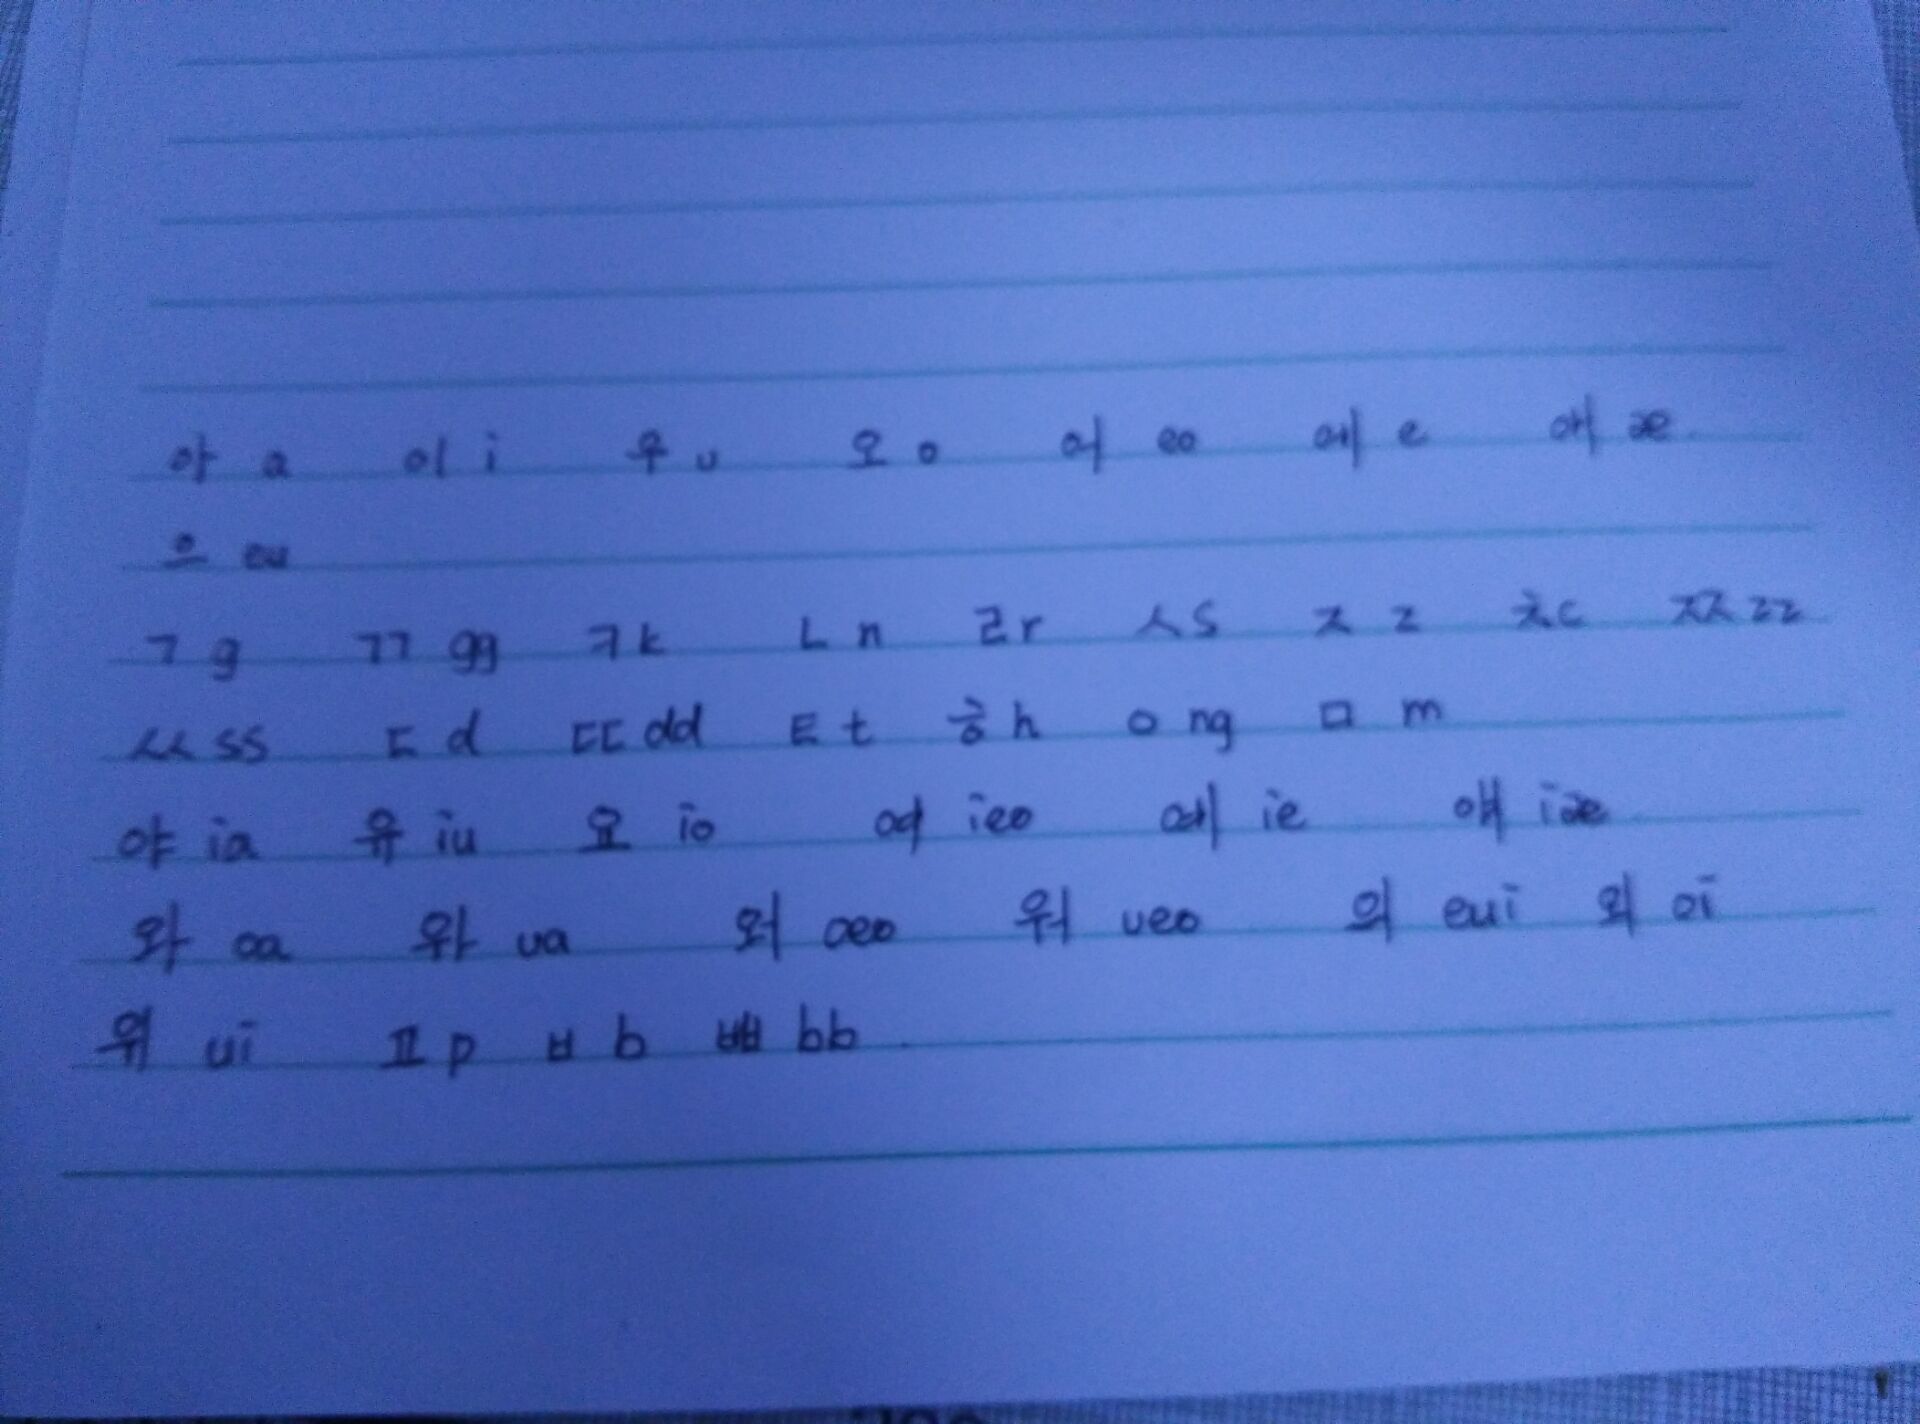 아 a 이 i 우 u 오 o 어 eo 에 e 애 æ
으 eu
ㄱ g ㄲ gg ㅋ k ㄴ n ㄹ r ㅅ s ㅈ z ㅊ c ㅉ zz
ㅆ ss ㄷ d ㄸ dd ㅌ t ㅎ h ㅇ ng ㅁ m
야 ia 유 iu 요 io 여 ieo 예 ie 얘 iæ
와 oa ua oeo 워 ueo 의 eui 외 oi
위 ui ㅍ p ㅂ b ㅃ bb